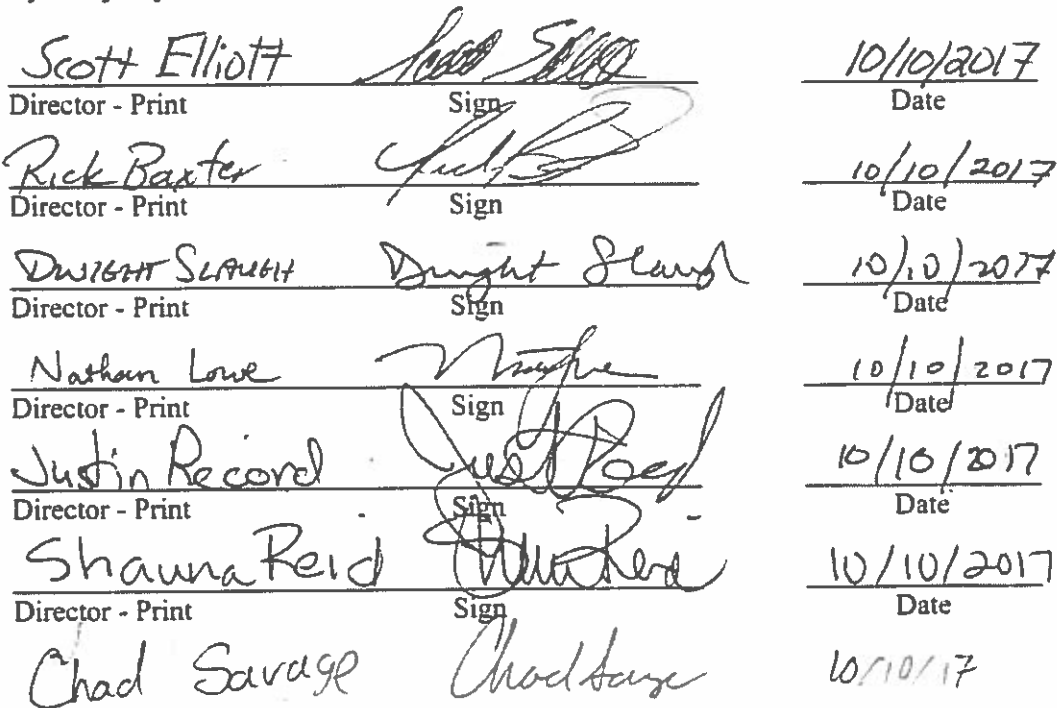 Scott Elliott Scott Elliott 10/10/2017
Director - Print Sign Date
Rick Baxter Rick B 10/10/2017
Director - Print Sign Date
DWIGHT SLAUGH Dwight Slaugh 10/10/2017
Director - Print Sign Date
Nathan Lowe 10/10/2017
Director - Print Sign Date
Justin Record Justin Record 10/10/2017
Director - Print Sign Date
Shauna Reid Shauna Reid 10/10/2017
Director - Print Sign Date
Chad Savage Chad Savage 10/10/17